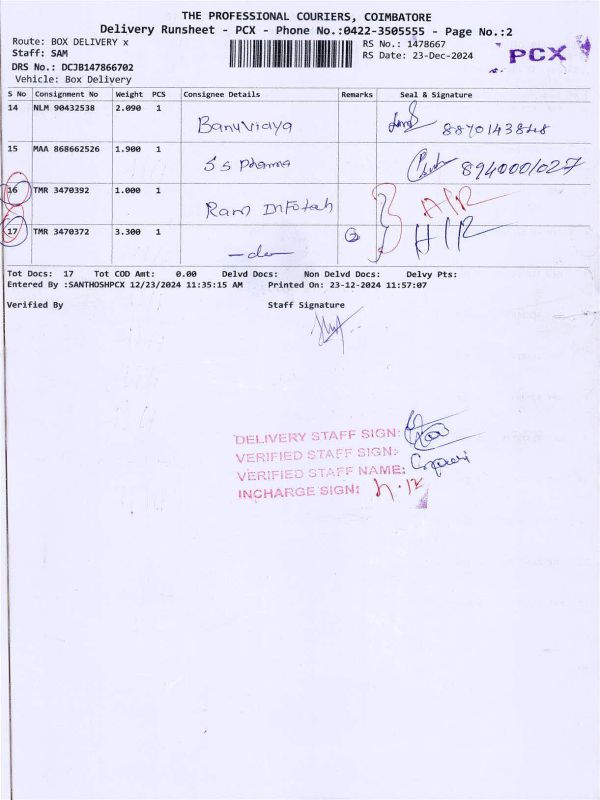 THE PROFESSIONAL COURIERS, COIMBATORE
Delivery Runsheet - PCX - Phone No.:0422-3505555 - Page No.:2
Route: BOX DELIVERY x
RS No.: 1478667
Staff: SAM
RS Date: 23-Dec-2024
PCX
DRS No.: DCJB147866702
Vehicle: Box Delivery
S No Consignment No Weight PCS Consignee Details Remarks Seal & Signature
14 NLM 90432538 2.090 1 Banu Vidya 8870143848
15 MAA 868662526 1.900 1 S S Pharma 8940001027
16 TMR 3470392 1.000 1 Ram Infotah H/R
17 TMR 3470372 3.300 1 -do- 2 H/R
Tot Docs: 17 Tot COD Amt: 0.00 Delvd Docs: Non Delvd Docs: Delvy Pts:
Entered By :SANTHOSHPCX 12/23/2024 11:35:15 AM Printed On: 23-12-2024 11:57:07
Verified By Staff Signature
DELIVERY STAFF SIGN:
VERIFIED STAFF SIGN:
VERIFIED STAFF NAME:
INCHARGE SIGN: